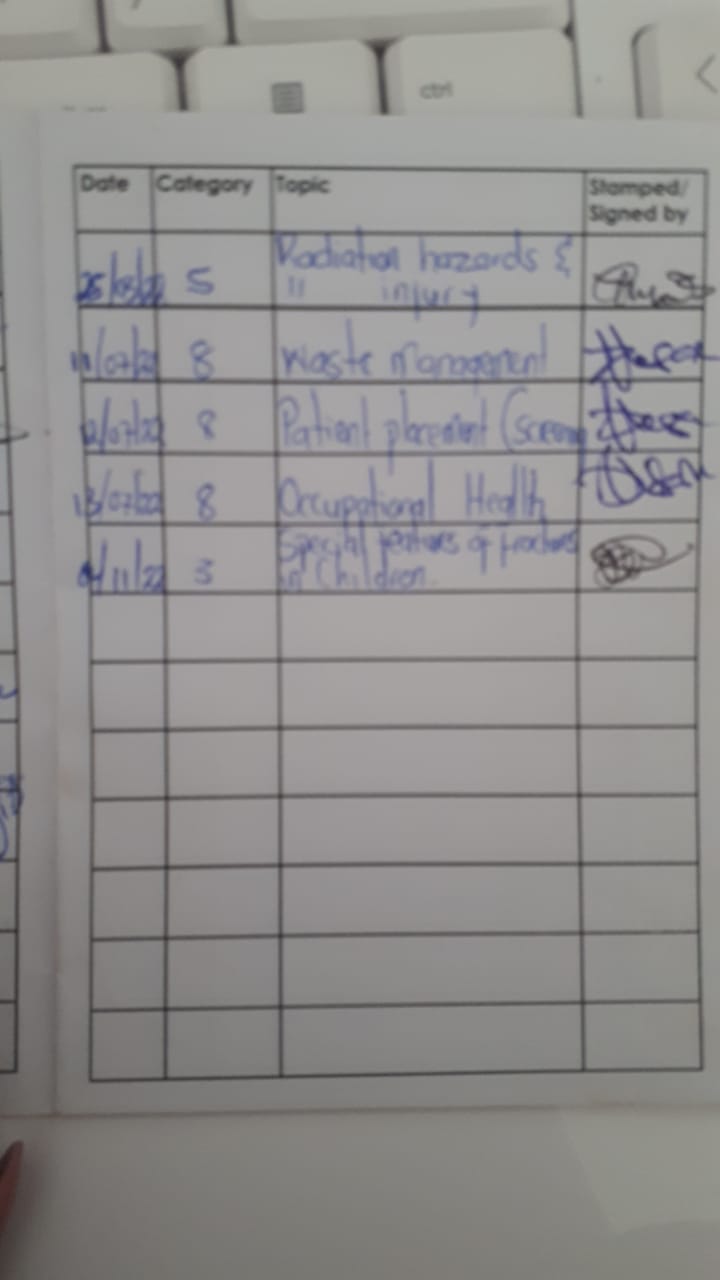 ctrl
Date Category Topic Stamped/
Signed by
Radiation hazards &
5 " injury
11/07/22 8 Waste Management
12/07/22 8 Patient placement
13/07/22 8 Occupational Health
Special features of fractures
/11/22 3 in Children.